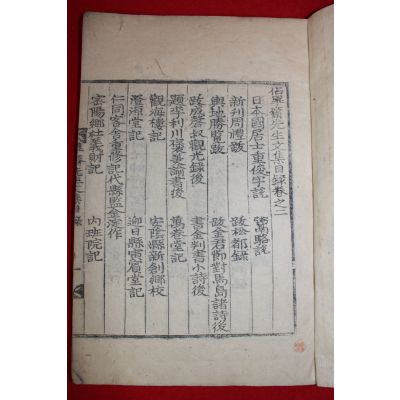 佔畢齋先生文集目録卷之二
日本國居士重俊字説 說
新刊周禮跋 跋松都録
輿地勝覽跋 跋金君節對馬島諸詩後
跋成磬叔觀光録後 書金判書小詩後
題李利川褒美諭書後 萬春堂記
觀海樓記 安陰縣新創鄉校
澄源堂記 迎日縣寅賓堂記
仁同客舍重修記代縣監金作
密陽鄉社義財記 內班院記